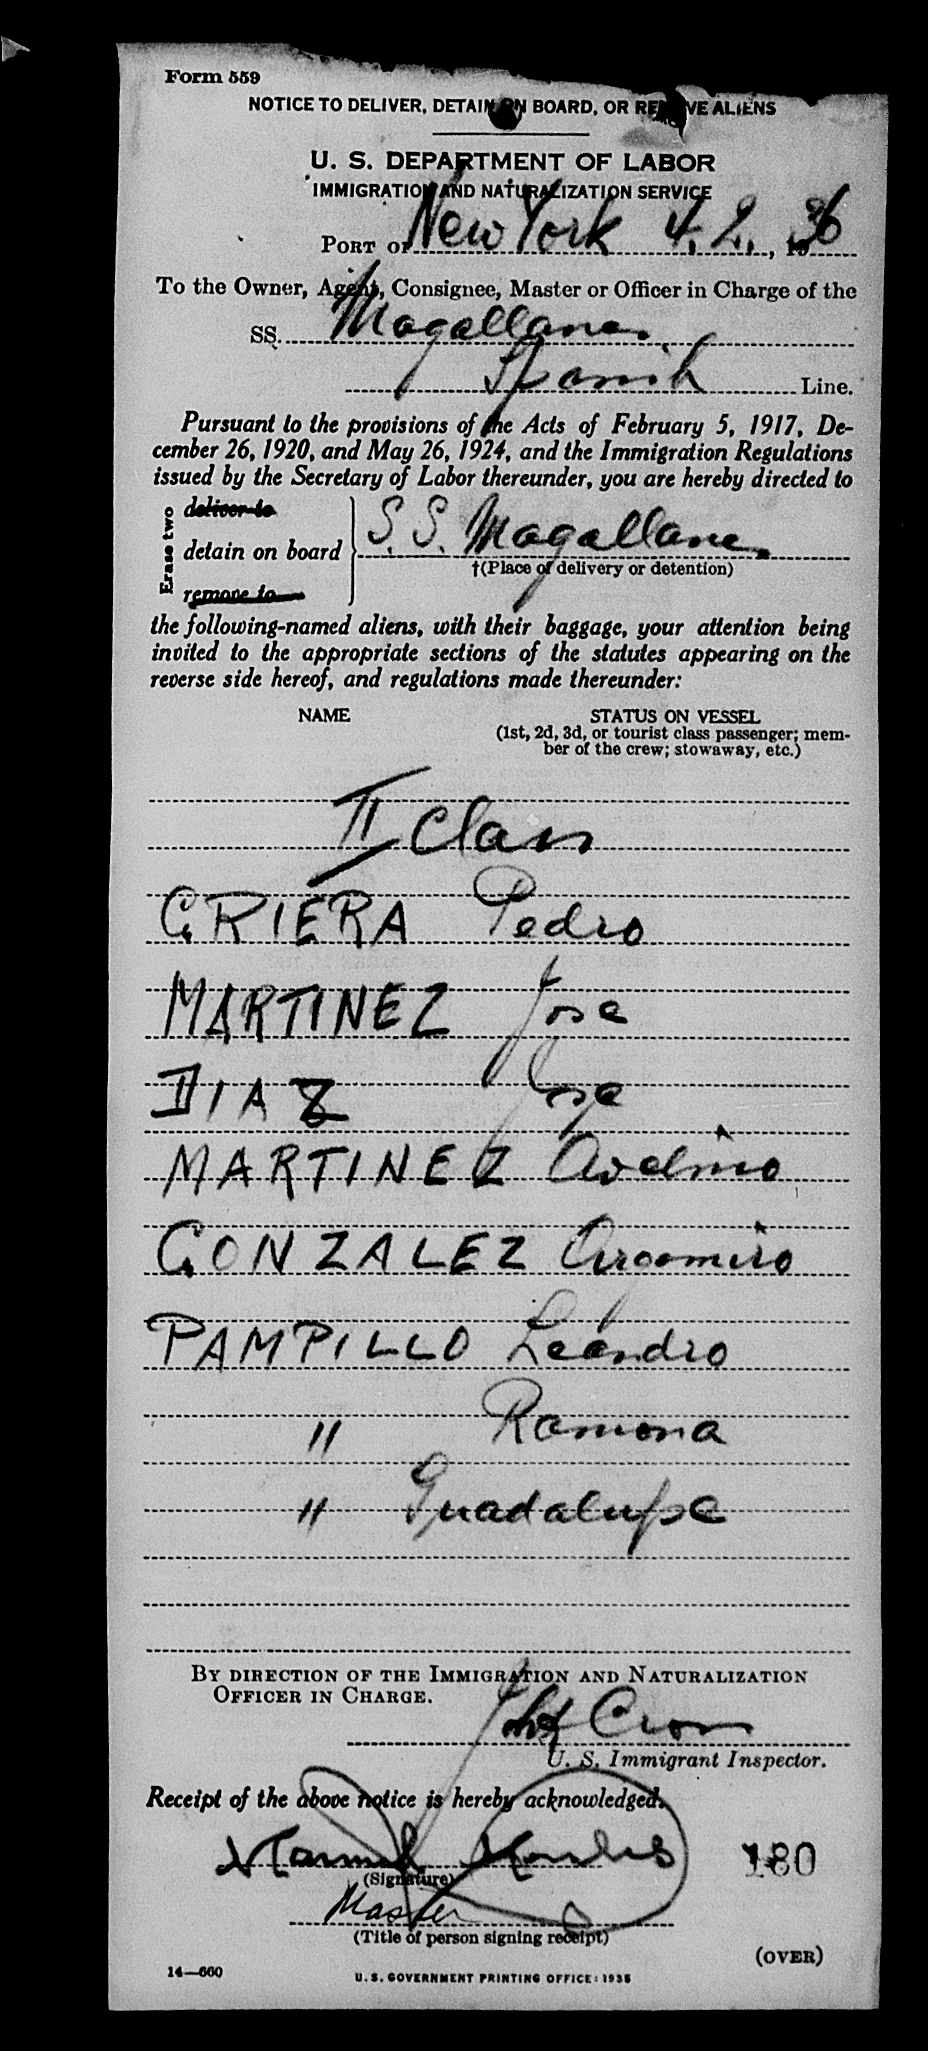 Form 559
NOTICE TO DELIVER, DETAIN ON BOARD, OR REMOVE ALIENS
U. S. DEPARTMENT OF LABOR
IMMIGRATION AND NATURALIZATION SERVICE
PORT OF New York 4. 2., 1936
To the Owner, Agent, Consignee, Master or Officer in Charge of the
SS. Magallanes
Spanish Line.
Pursuant to the provisions of the Acts of February 5, 1917, De-
cember 26, 1920, and May 26, 1924, and the Immigration Regulations
issued by the Secretary of Labor thereunder, you are hereby directed to
Erase two
deliver to
detain on board S.S. Magallanes
†(Place of delivery or detention)
remove to
the following-named aliens, with their baggage, your attention being
invited to the appropriate sections of the statutes appearing on the
reverse side hereof, and regulations made thereunder:
NAME STATUS ON VESSEL
(1st, 2d, 3d, or tourist class passenger; mem-
ber of the crew; stowaway, etc.)
II Class
GRIERA Pedro
MARTINEZ Jose
DIAZ Jose
MARTINEZ Avelino
GONZALEZ Argomiro
PAMPILLO Leandro
" Ramona
" Guadalupe
BY DIRECTION OF THE IMMIGRATION AND NATURALIZATION
OFFICER IN CHARGE.
U. S. Immigrant Inspector.
Receipt of the above notice is hereby acknowledged.
180
(Signature)
Master
(Title of person signing receipt)
(OVER)
14—660 U. S. GOVERNMENT PRINTING OFFICE: 1935